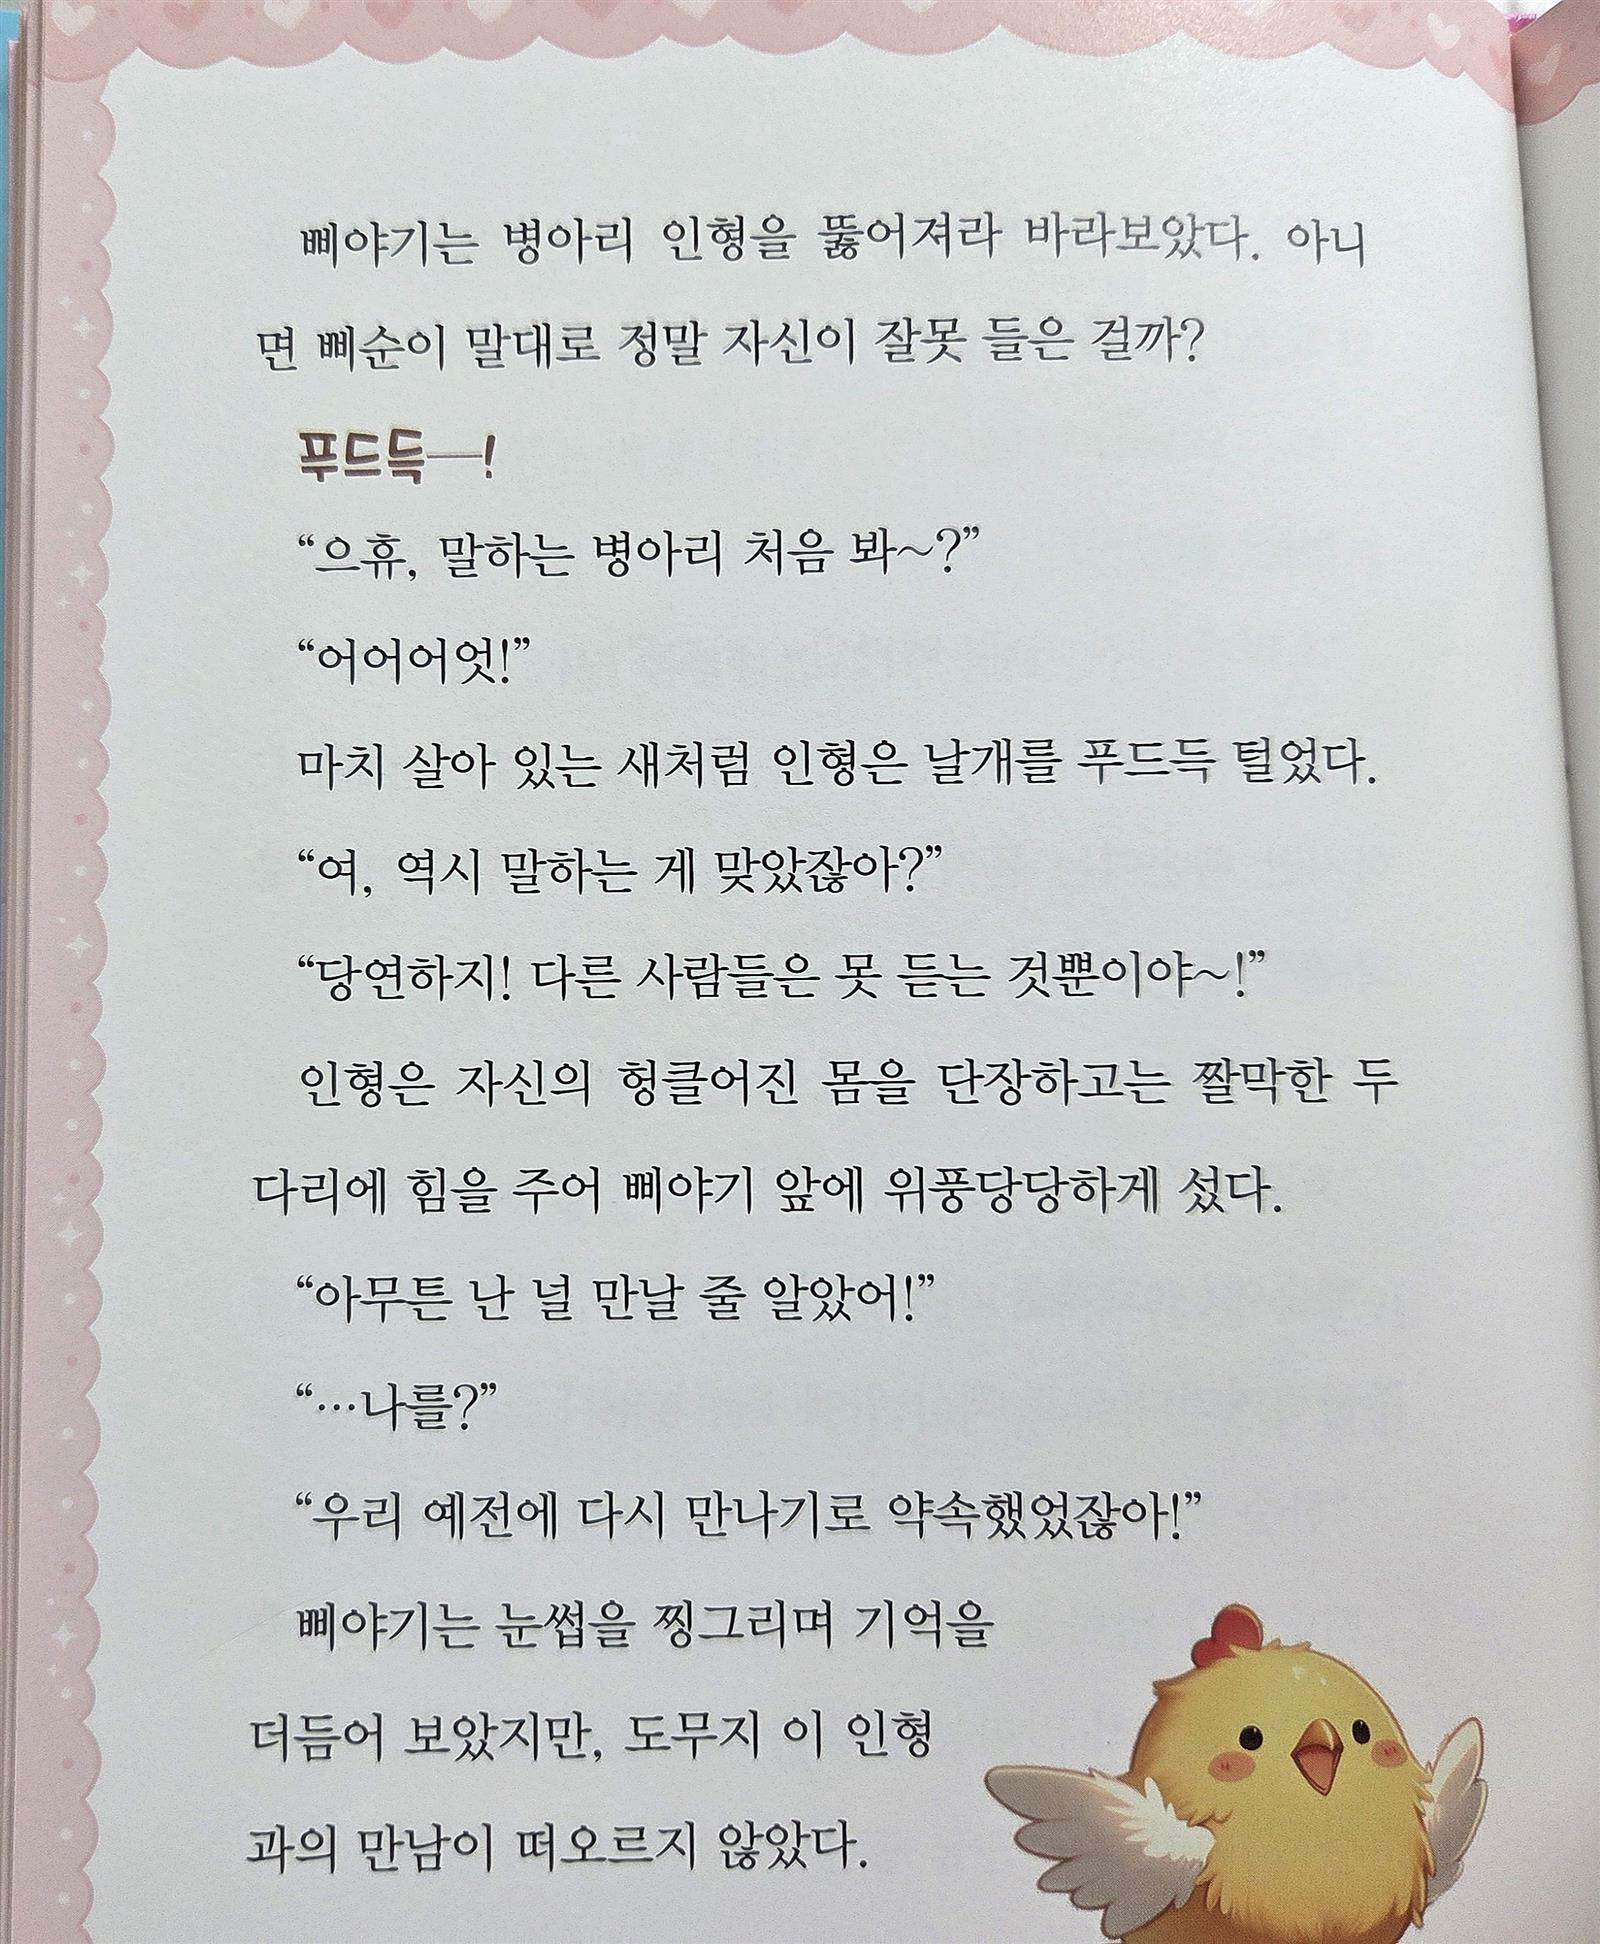 삐야기는 병아리 인형을 뚫어져라 바라보았다. 아니
면 삐순이 말대로 정말 자신이 잘못 들은 걸까?
푸드득—!
“으휴, 말하는 병아리 처음 봐~?”
“어어어엇!”
마치 살아 있는 새처럼 인형은 날개를 푸드득 털었다.
“여, 역시 말하는 게 맞았잖아?”
“당연하지! 다른 사람들은 못 듣는 것뿐이야~!”
인형은 자신의 헝클어진 몸을 단장하고는 짤막한 두
다리에 힘을 주어 삐야기 앞에 위풍당당하게 섰다.
“아무튼 난 널 만날 줄 알았어!”
“…나를?”
“우리 예전에 다시 만나기로 약속했었잖아!”
삐야기는 눈썹을 찡그리며 기억을
더듬어 보았지만, 도무지 이 인형
과의 만남이 떠오르지 않았다.